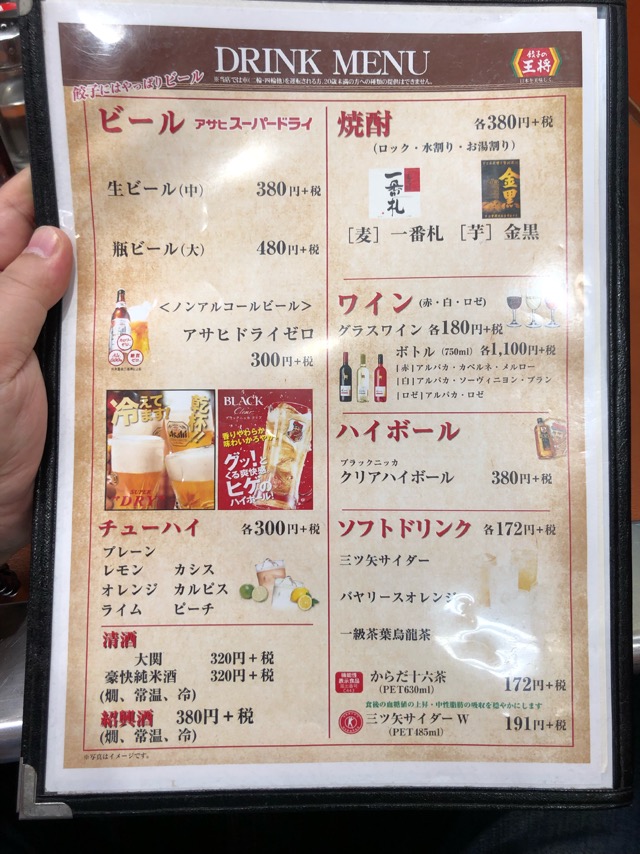 DRINK MENU
餃子の
王将
餃子にはやっぱりビール
ビール アサヒスーパードライ
生ビール(中) 380円+税
瓶ビール(大) 480円+税
<ノンアルコールビール>
アサヒドライゼロ
300円+税
冷えてます!
乾杯!!
Asahi
SUPER
"DRY"
BLACK
Clear
香りやわらか
味わいかろやか
グッ!と
くる爽快感
ヒゲの
ハイボール!
チューハイ 各300円+税
プレーン
レモン カシス
オレンジ カルピス
ライム ピーチ
清酒
大関 320円+税
豪快純米酒 320円+税
(燗、常温、冷)
紹興酒 380円+税
(燗、常温、冷)
※写真はイメージです。
焼酎 各380円+税
(ロック・水割り・お湯割り)
一番札
金黒
[麦] 一番札 [芋] 金黒
ワイン (赤・白・ロゼ)
グラスワイン 各180円+税
ボトル (750ml) 各1,100円+税
[赤]アルパカ・カベルネ・メルロー
[白]アルパカ・ソーヴィニヨン・ブラン
[ロゼ]アルパカ・ロゼ
ハイボール
ブラックニッカ
クリアハイボール 380円+税
ソフトドリンク 各172円+税
三ツ矢サイダー
バヤリースオレンジ
一級茶葉烏龍茶
からだ十六茶
(PET630ml) 172円+税
食後の血糖値の上昇・中性脂肪の吸収を穏やかにします
三ツ矢サイダー W 191円+税
(PET485ml)